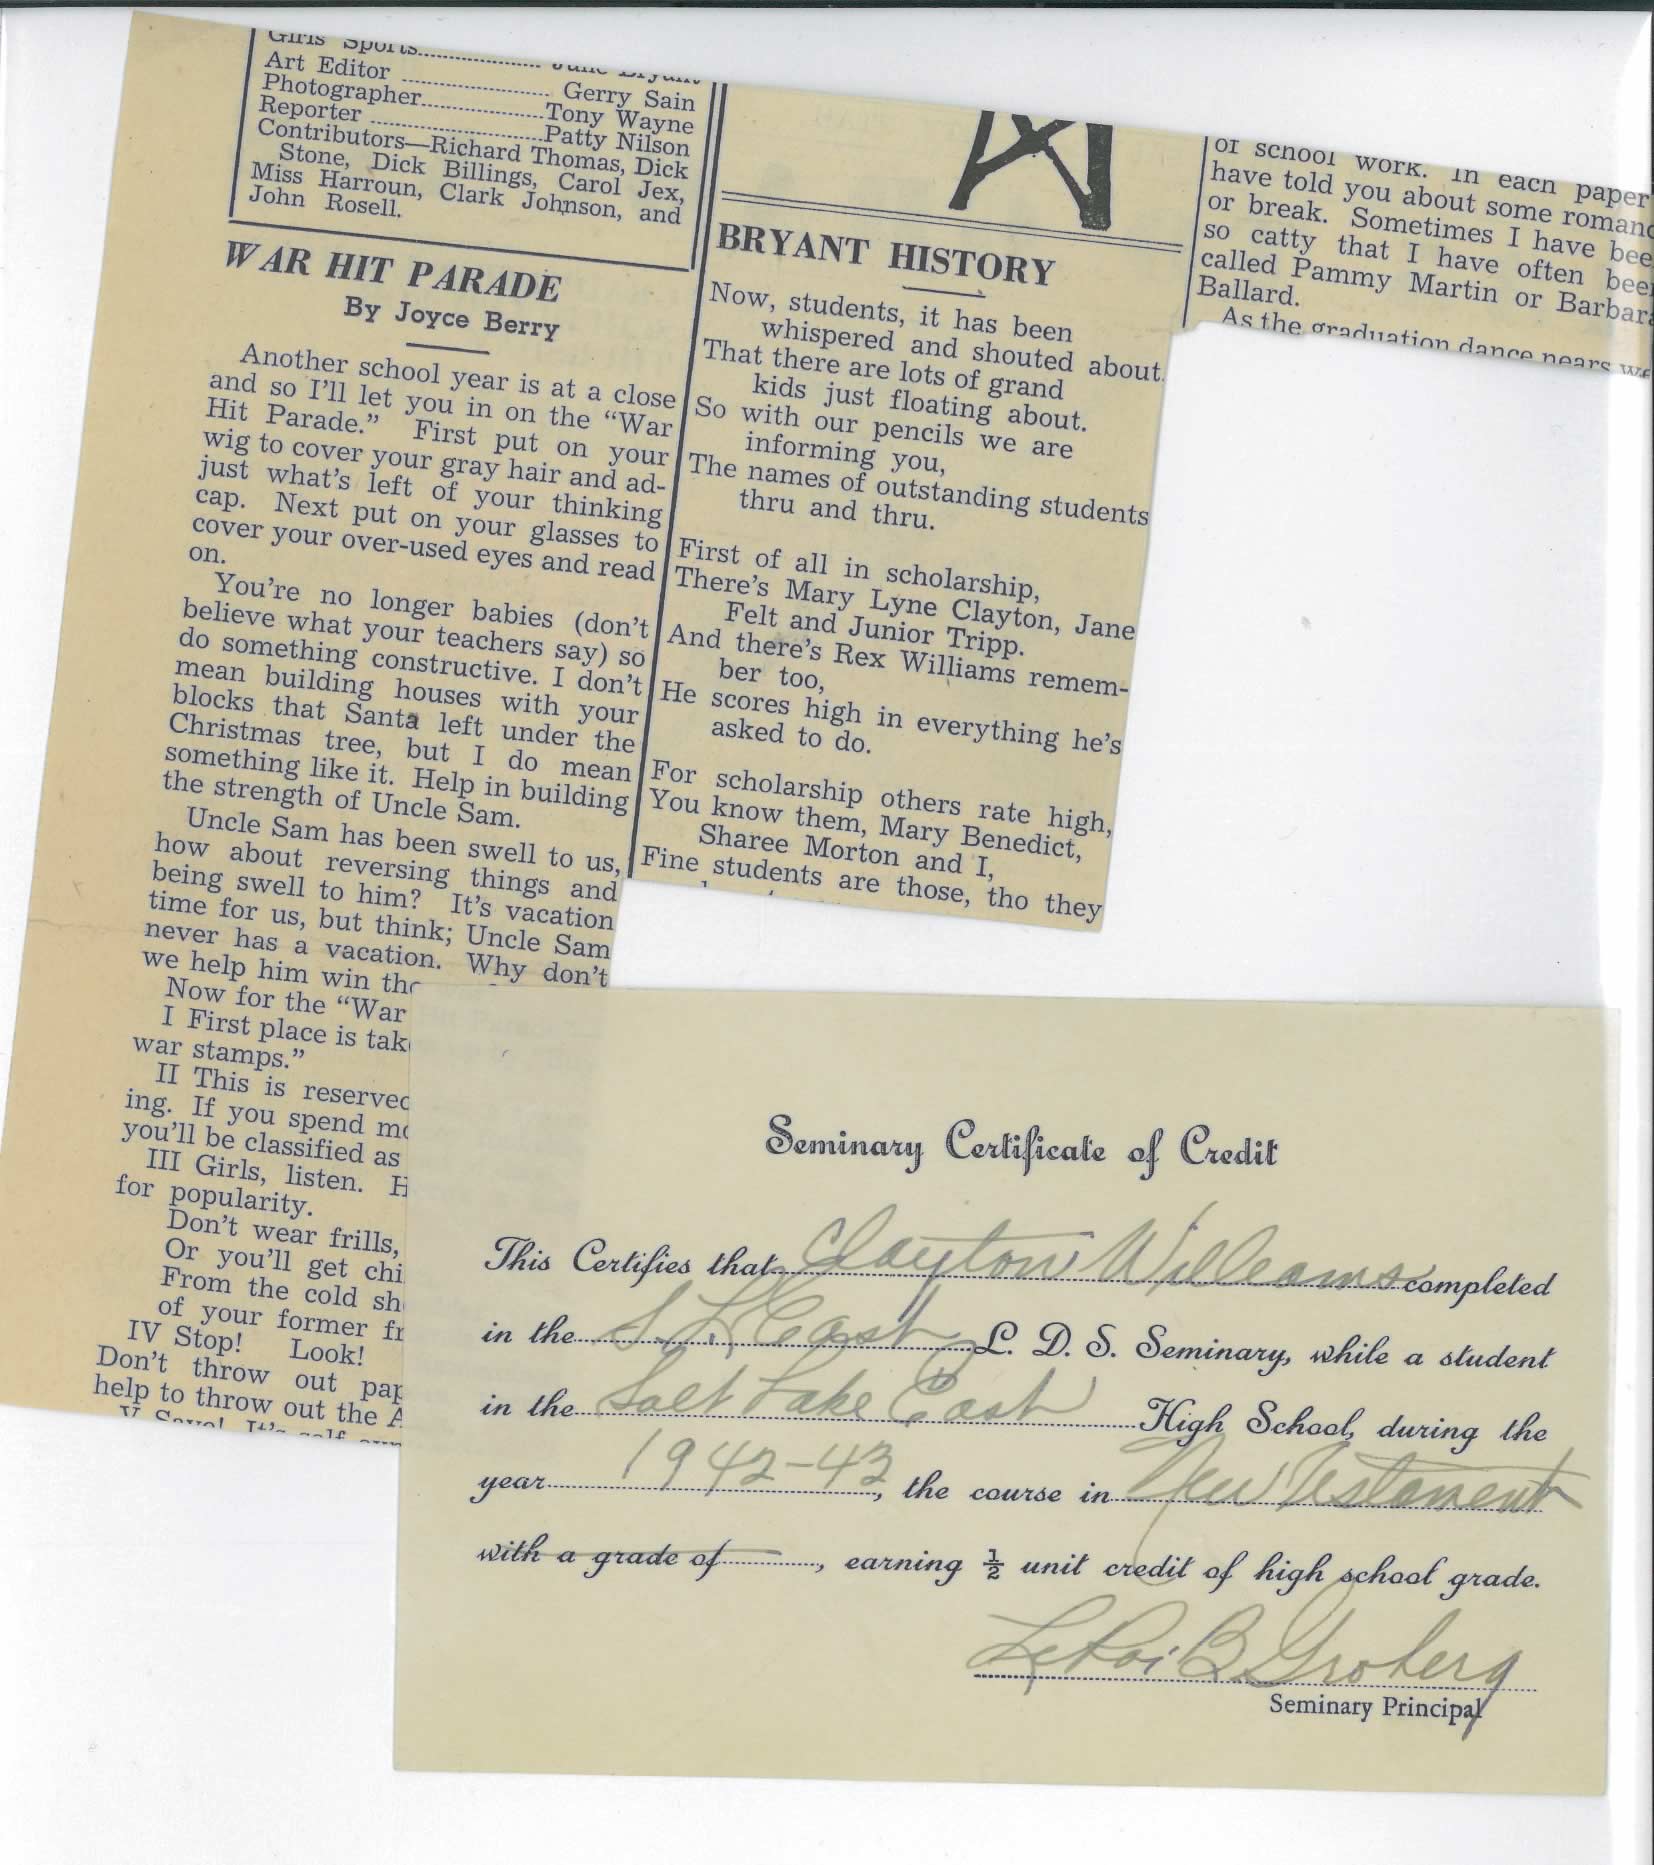 Girls Sports
Art Editor Gerry Sain
Photographer Tony Wayne
Reporter Patty Nilson
Contributors—Richard Thomas, Dick
Stone, Dick Billings, Carol Jex,
Miss Harroun, Clark Johnson, and
John Rosell.
WAR HIT PARADE
By Joyce Berry
Another school year is at a close
and so I'll let you in on the "War
Hit Parade." First put on your
wig to cover your gray hair and ad-
just what's left of your thinking
cap. Next put on your glasses to
cover your over-used eyes and read
on.
You're no longer babies (don't
believe what your teachers say) so
do something constructive. I don't
mean building houses with your
blocks that Santa left under the
Christmas tree, but I do mean
something like it. Help in building
the strength of Uncle Sam.
Uncle Sam has been swell to us,
how about reversing things and
being swell to him? It's vacation
time for us, but think; Uncle Sam
never has a vacation. Why don't
we help him win the
Now for the "War
I First place is tak
war stamps."
II This is reserved
ing. If you spend mo
you'll be classified as
III Girls, listen. H
for popularity.
Don't wear frills,
Or you'll get chi
From the cold sh
of your former fr
IV Stop! Look!
Don't throw out pap
help to throw out the A
V Save! It's
BRYANT HISTORY
Now, students, it has been
whispered and shouted about.
That there are lots of grand
kids just floating about.
So with our pencils we are
informing you,
The names of outstanding students
thru and thru.
First of all in scholarship,
There's Mary Lyne Clayton, Jane
Felt and Junior Tripp.
And there's Rex Williams remem-
ber too,
He scores high in everything he's
asked to do.
For scholarship others rate high,
You know them, Mary Benedict,
Sharee Morton and I,
Fine students are those, tho they
of school work. In each paper
have told you about some romanc
or break. Sometimes I have bee
so catty that I have often bee
called Pammy Martin or Barbara
Ballard.
As the graduation dance nears we
Seminary Certificate of Credit
This Certifies that Clayton Williams completed
in the S. L. East L. D. S. Seminary, while a student
in the Salt Lake East High School, during the
year 1942-43, the course in New Testament
with a grade of , earning ½ unit credit of high school grade.
LeRoi B Groberg
Seminary Principal